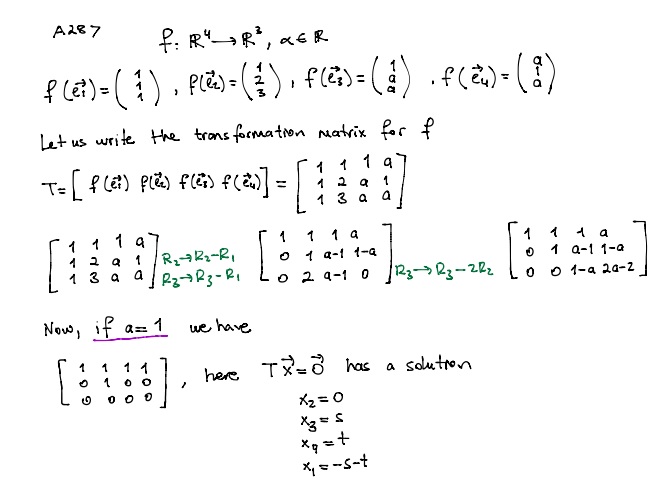 A287
f: ℝ⁴ → ℝ³, α ∈ ℝ
f(e⃗₁) = (1 1 1), f(e⃗₂) = (1 2 3), f(e⃗₃) = (1 a a), f(e⃗₄) = (a 1 a)
Let us write the transformation matrix for f
T = [f(e⃗₁) f(e⃗₂) f(e⃗₃) f(e⃗₄)] = [1 1 1 a
1 2 a 1
1 3 a a]
[1 1 1 a
1 2 a 1
1 3 a a]
R₂→R₂-R₁
R₃→R₃-R₁
[1 1 1 a
0 1 a-1 1-a
0 2 a-1 0]
R₃→R₃-2R₂
[1 1 1 a
0 1 a-1 1-a
0 0 1-a 2a-2]
Now, if a=1 we have
[1 1 1 1
0 1 0 0
0 0 0 0], here Tx⃗=0⃗ has a solution
x₂=0
x₃=s
x₄=t
x₁=-s-t